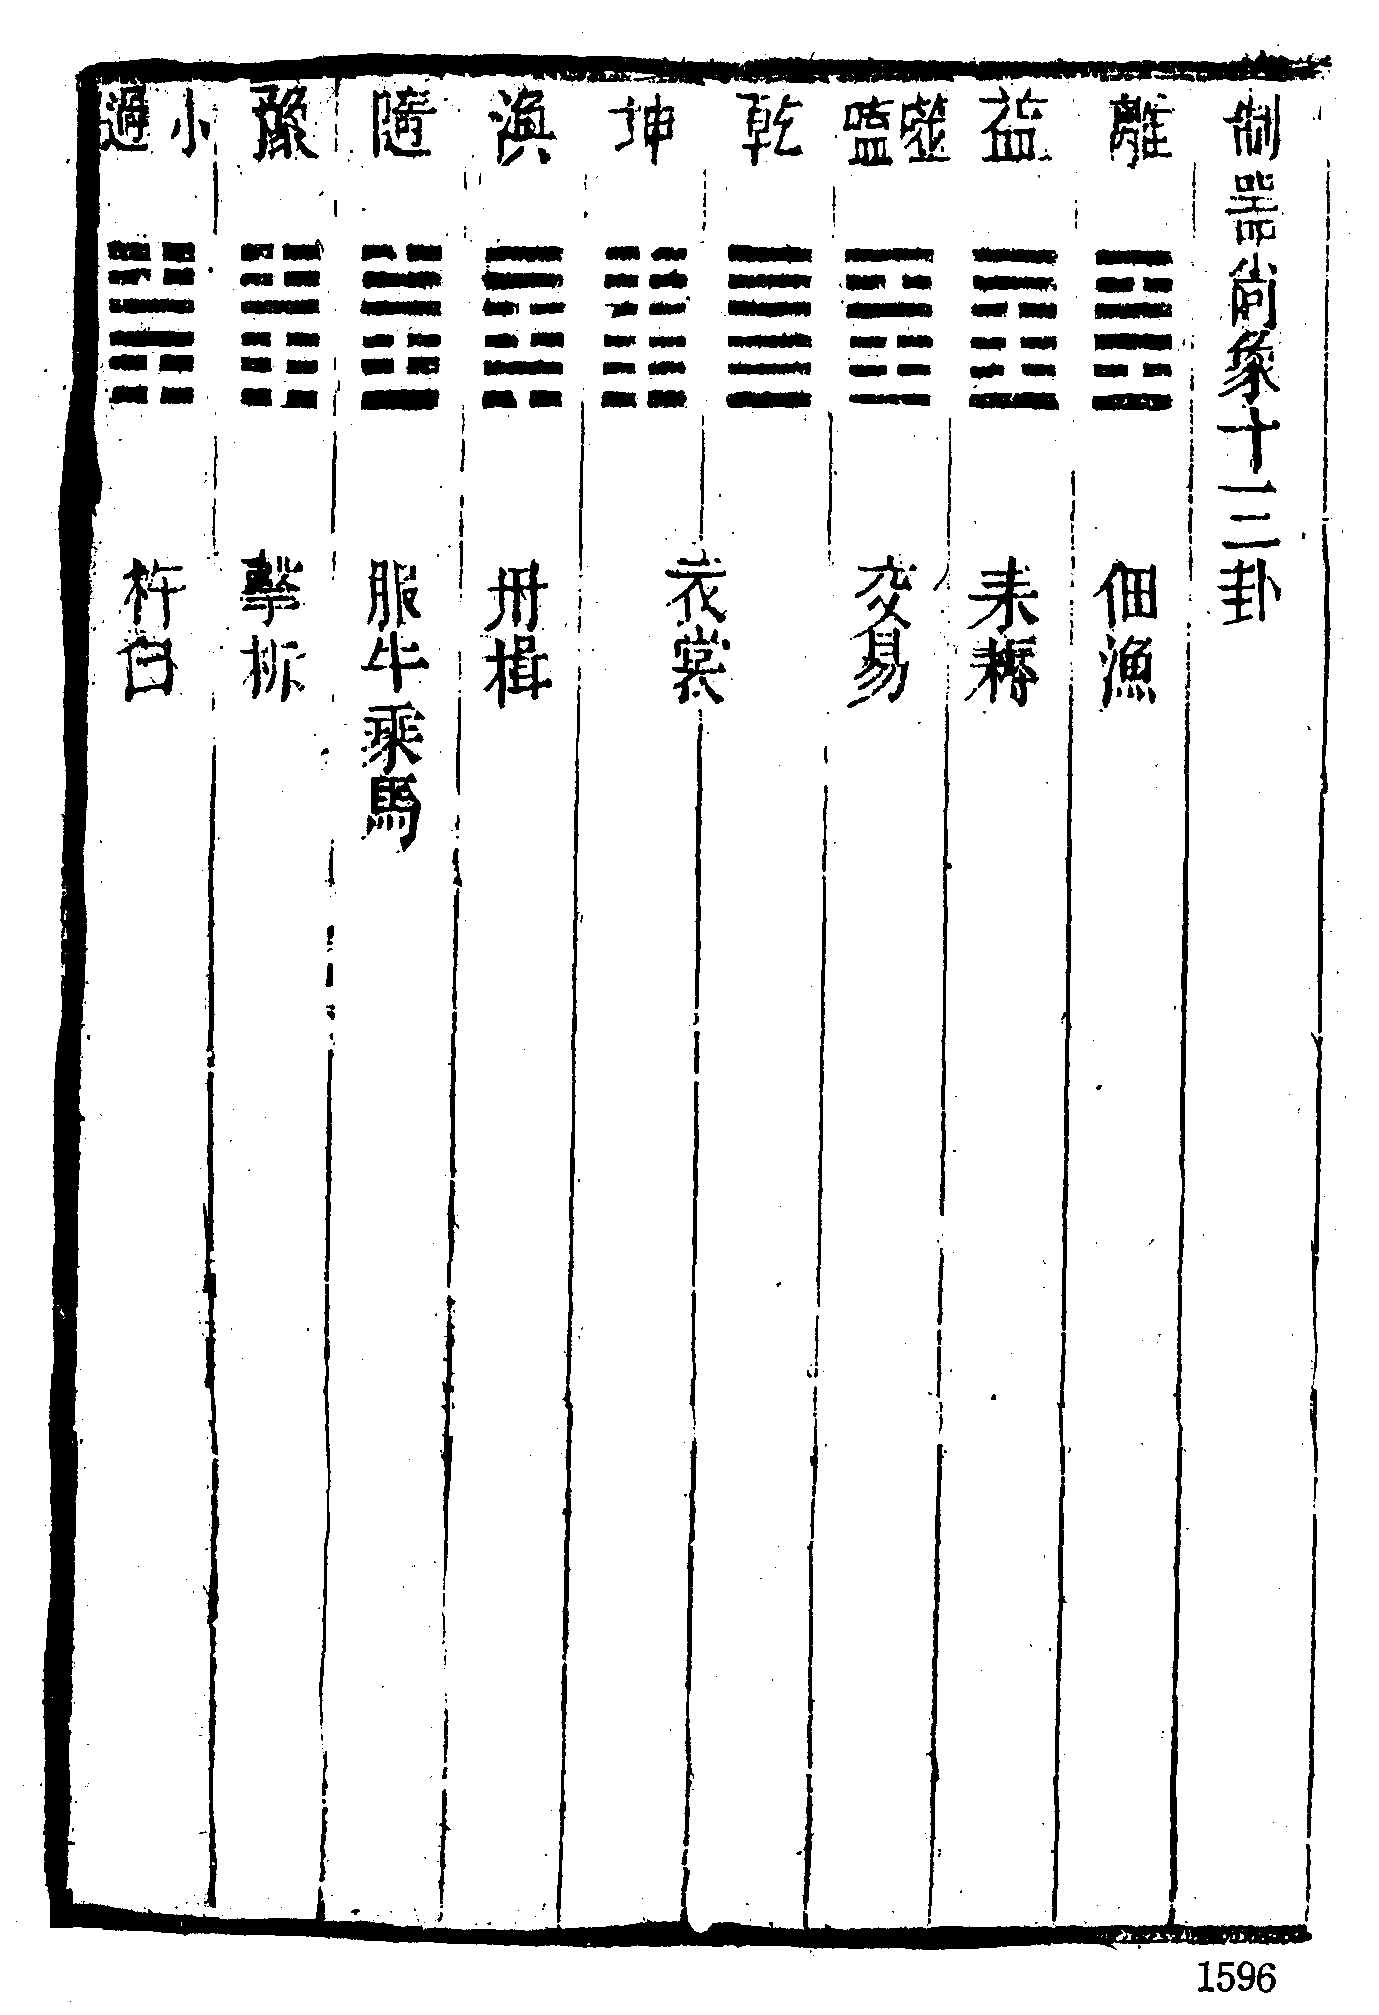 制器尚象十三卦
離 佃漁
益 耒耨
噬嗑 交易
乾 坤 衣裳
渙 舟楫
隨 服牛乘馬
豫 擊柝
小過 杵臼
1596